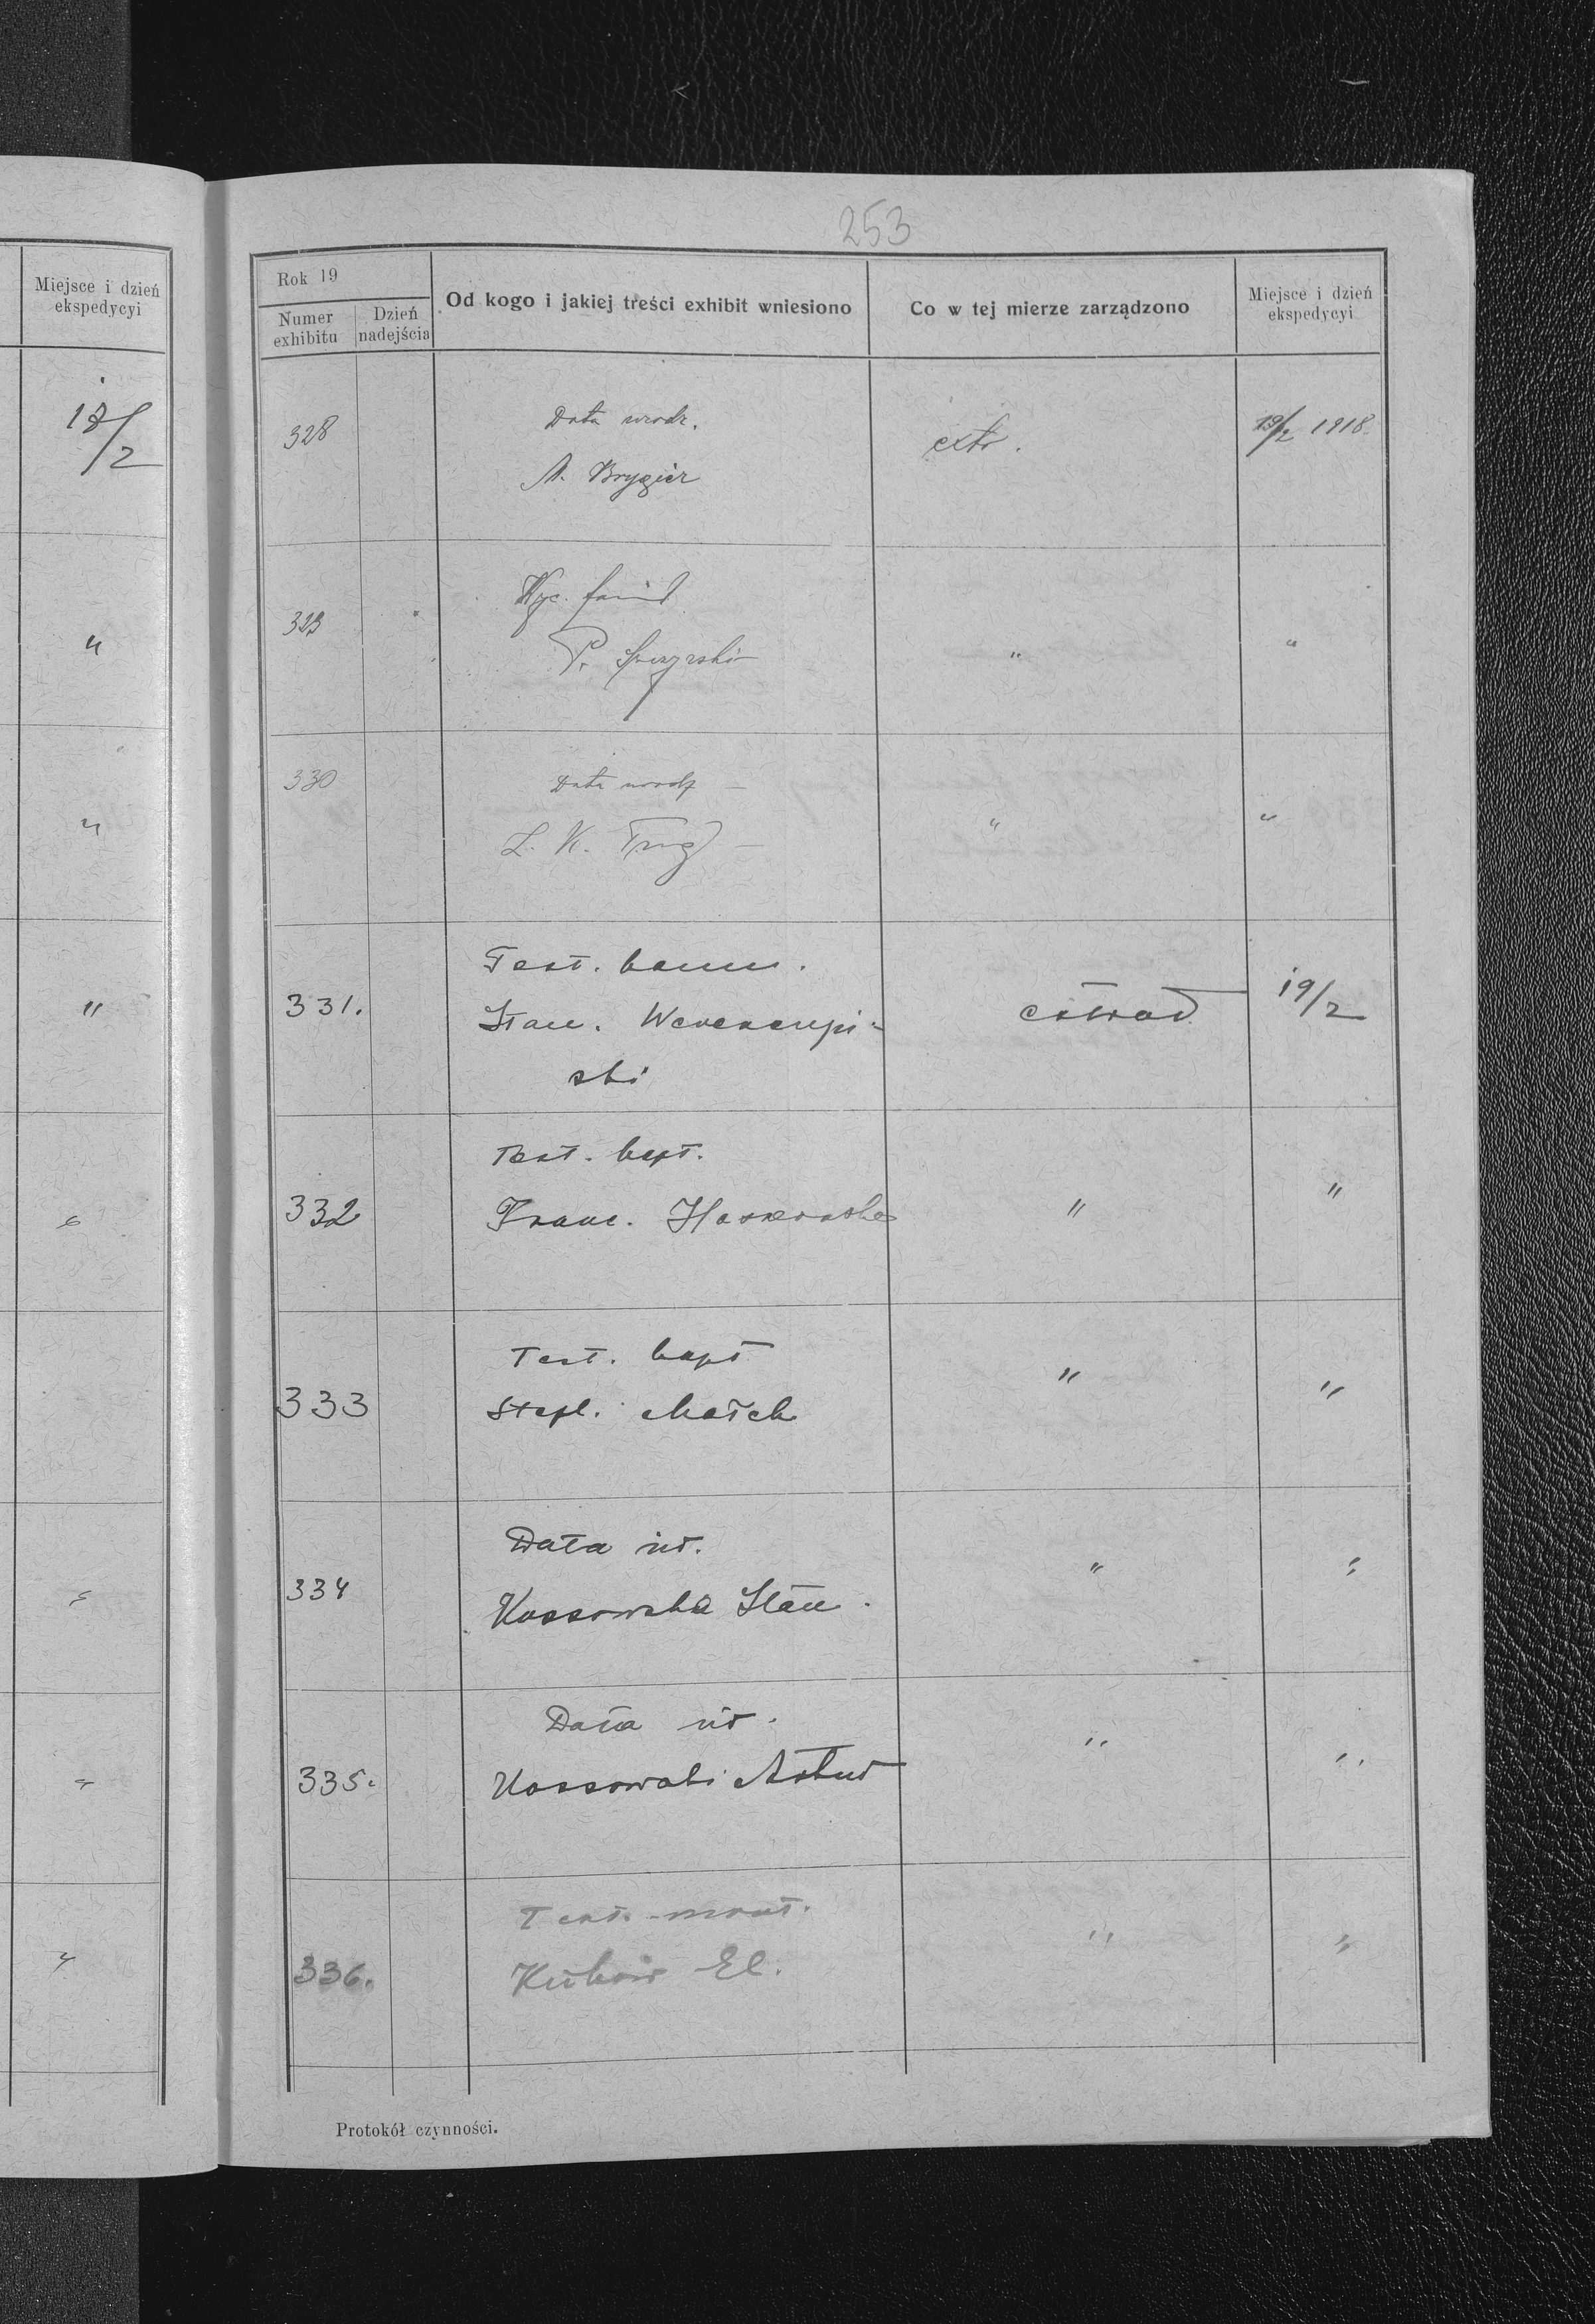 Miejsce i dzień
ekspedycyi
18/2
"
"
"
"
"
"
"
253
Rok 19
Numer
exhibitu
Dzień
nadejścia
Od kogo i jakiej treści exhibit wniesiono
Co w tej mierze zarządzono
Miejsce i dzień
ekspedycyi
328
Data urodz.
M. Brygier
extr.
19/2 1918.
329
Wyc. famil
P.
"
"
330
Data urodz
L. K.
"
"
331.
Test. bann.
Stan.
ski
extrad
19/2
332
Test. bapt.
Franc.
"
"
333
Test. bapt
Steph. Match
"
"
334
Data ur.
Kossowska Stan.
"
"
335.
Data ur.
Kossowski Artur
"
"
336.
Test. mort.
El.
"
"
Protokół czynności.